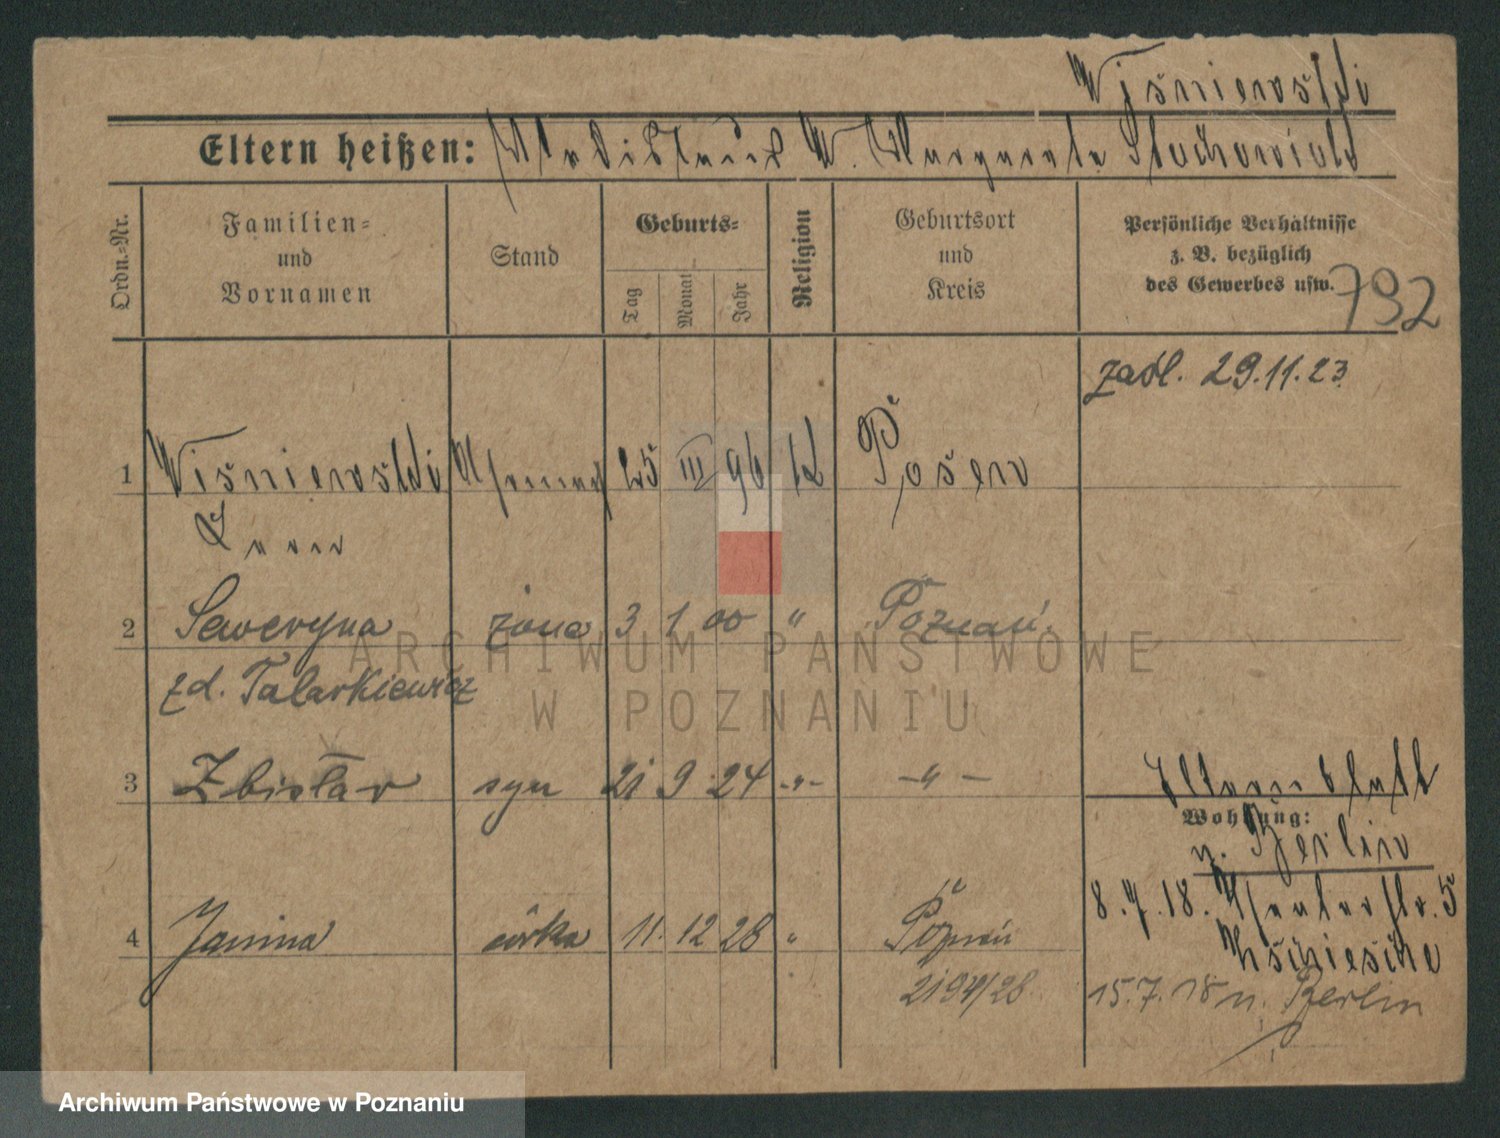 Wiśniewski
Eltern heißen: Wladislaus W. Margareta Stachowiak
Ordn.-Nr.
Familien- und Vornamen
Stand
Geburts-
Tag
Monat
Jahr
Religion
Geburtsort und Kreis
Persönliche Verhältnisse
z. B. bezüglich
des Gewerbes usw.
792
zaśl. 29.11.23
1 Wiśniewski 25 III 96 K Posen
2 Seweryna żona 3 1 00 " Poznań
zd. Talarkiewicz
3 syn 21 9 24 -"- -"-
Elternblatt
Wohnung:
n. Berlin
4 Janina córka 11. 12 28 " Poznań
8.7.18. 5
2194/28
15.7.18 n. Berlin
ARCHIWUM PAŃSTWOWE
W POZNANIU
Archiwum Państwowe w Poznaniu